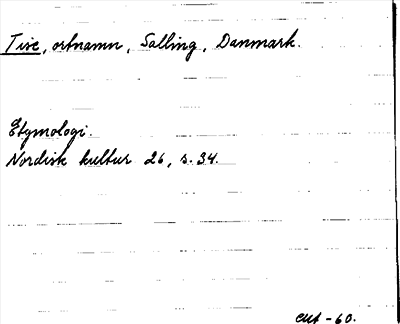 Tise, ortnamn, Salling, Danmark.
Etymologi.
Nordisk kultur 26, s. 34.
-60.